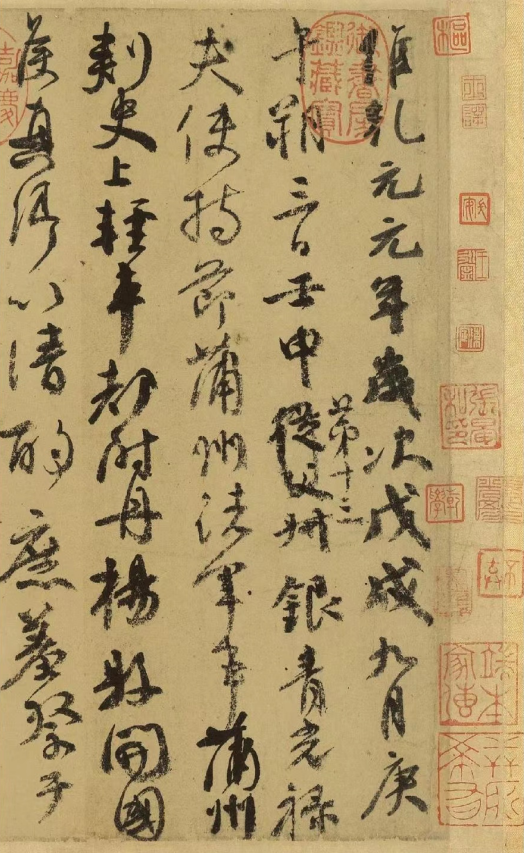 維乾元元年歲次戊戌九月庚
午朔三日壬申第十三從父叔銀青光祿
夫使持節蒲州諸軍事蒲州
刺史上輕車都尉丹楊縣開國
侯真卿以清酌庶羞祭于
御書房鑑藏寶
張晏私印
乾學